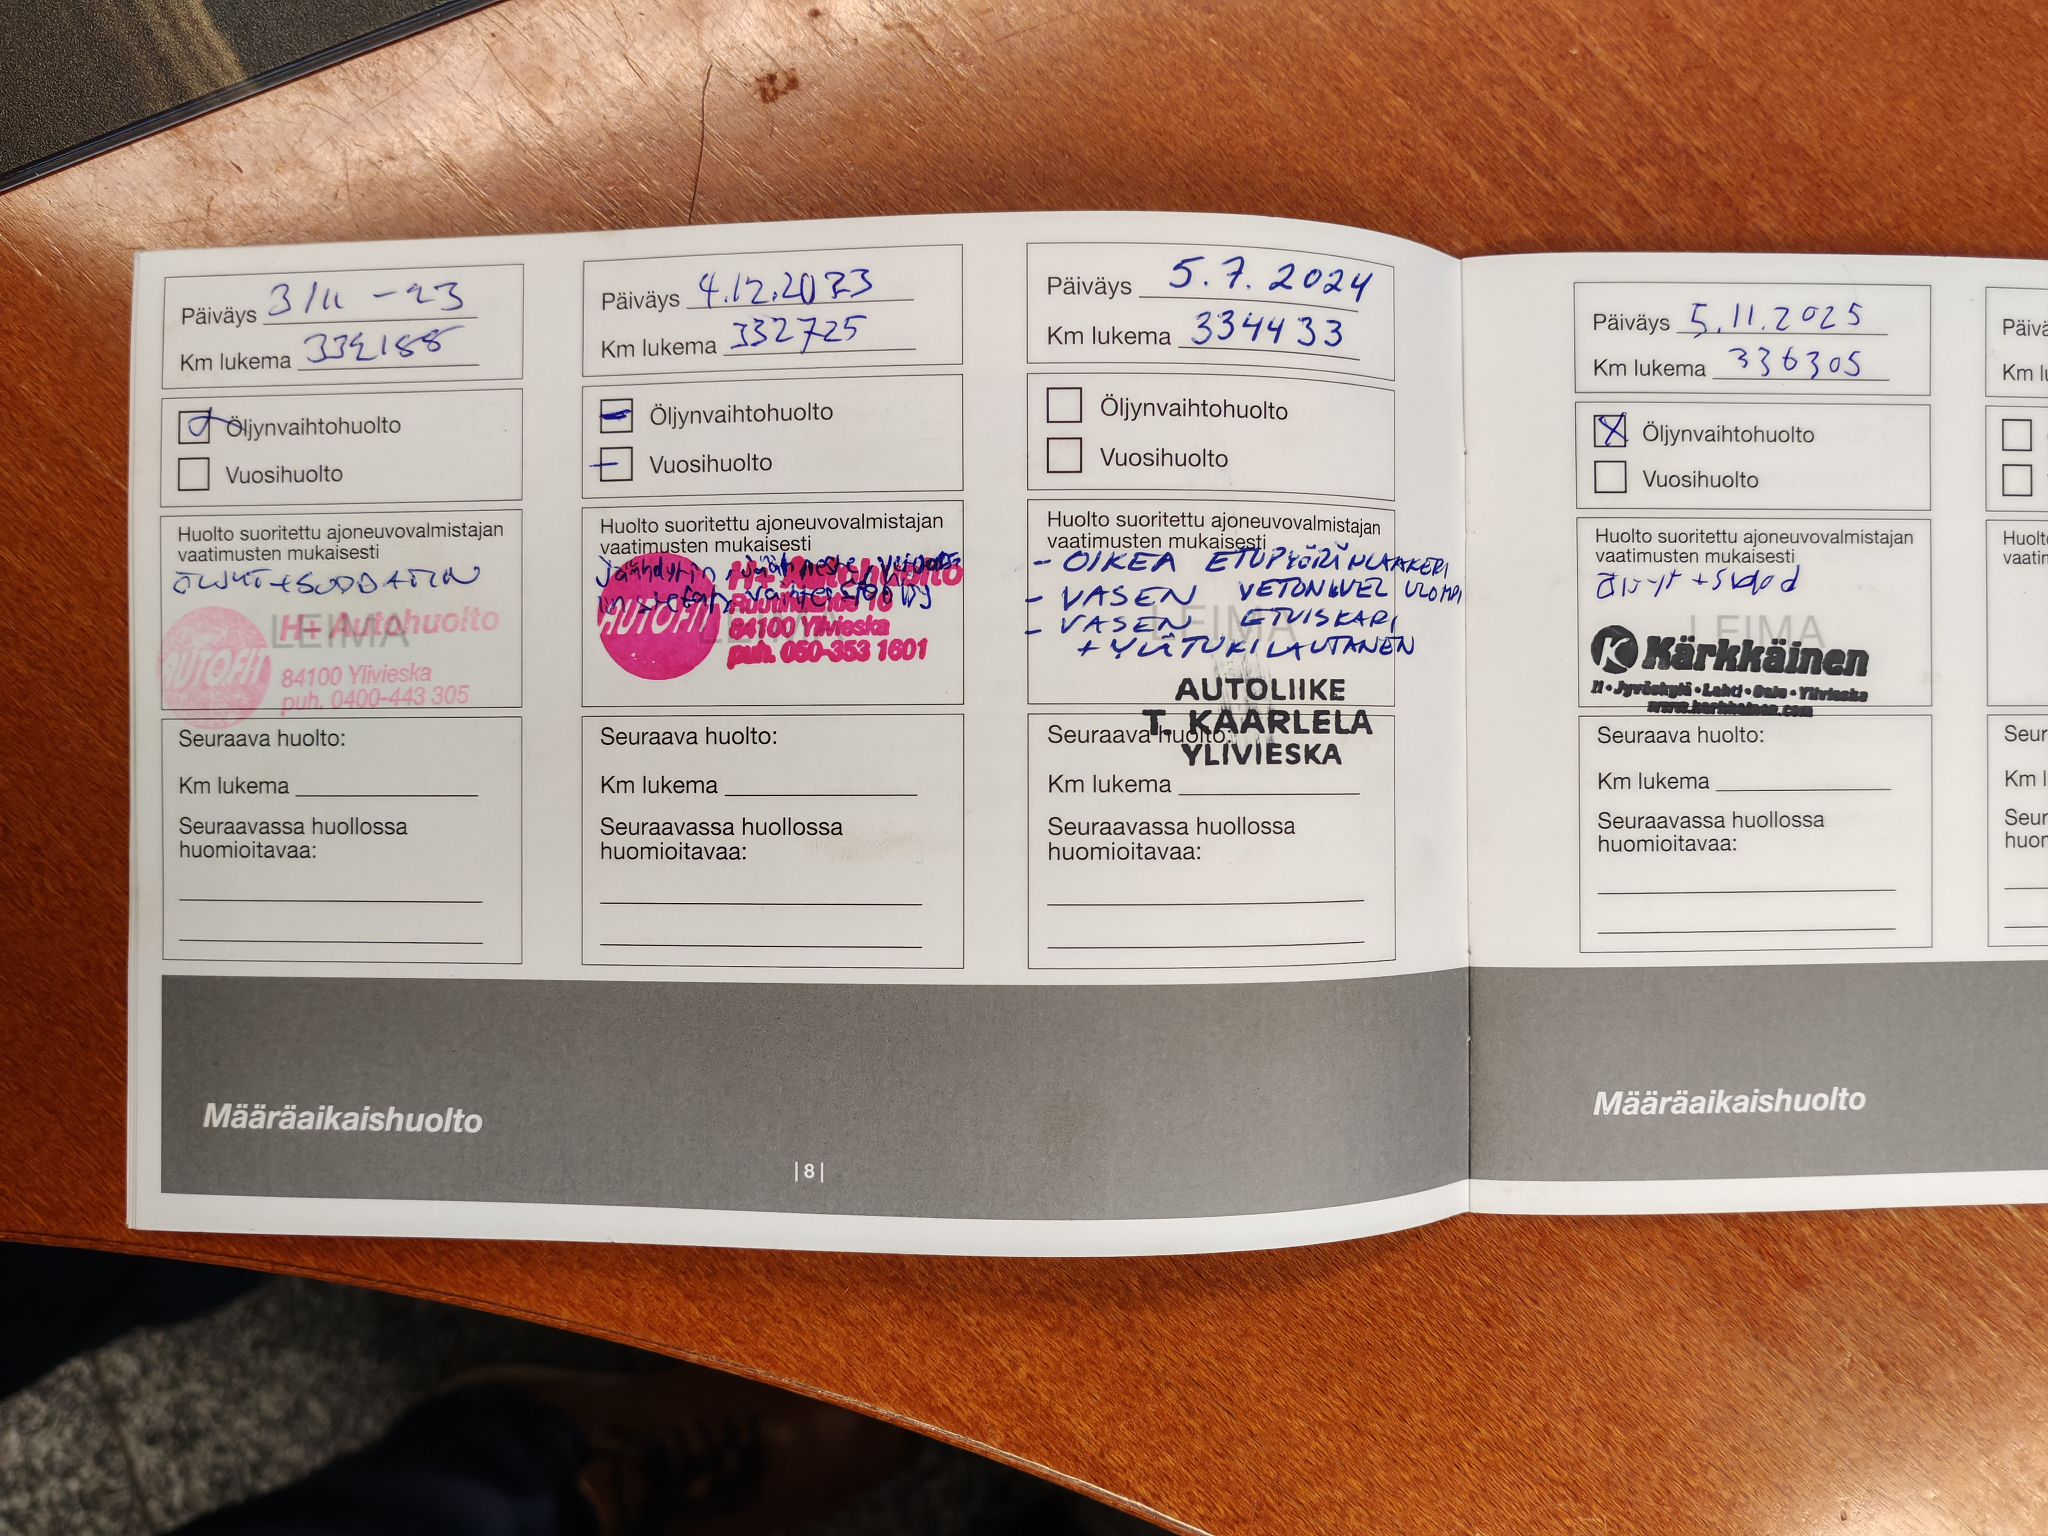 Päiväys 3/11 -23
Km lukema 332188
Öljynvaihtohuolto
Vuosihuolto
Huolto suoritettu ajoneuvovalmistajan
vaatimusten mukaisesti
LEIMA
H+ Autohuolto
AUTOFIT
84100 Ylivieska
puh. 0400-443 305
Seuraava huolto:
Km lukema
Seuraavassa huollossa
huomioitavaa:
Päiväys 4.12.2023
Km lukema 332725
Öljynvaihtohuolto
Vuosihuolto
Huolto suoritettu ajoneuvovalmistajan
vaatimusten mukaisesti
H+ Autohuolto
AUTOFIT
84100 Ylivieska
puh. 050-353 1601
Seuraava huolto:
Km lukema
Seuraavassa huollossa
huomioitavaa:
Päiväys 5.7.2024
Km lukema 334433
Öljynvaihtohuolto
Vuosihuolto
Huolto suoritettu ajoneuvovalmistajan
vaatimusten mukaisesti
- OIKEA ETUPYÖRÄNLAAKERI
- VASEN VETONIVEL ULOMPI
- VASEN ETUISKARI
+ YLÄTUKILAUTANEN
LEIMA
AUTOLIIKE
T. KAARLELA
YLIVIESKA
Seuraava huolto:
Km lukema
Seuraavassa huollossa
huomioitavaa:
Määräaikaishuolto
|8|
Päiväys 5.11.2025
Km lukema 336305
Öljynvaihtohuolto
Vuosihuolto
Huolto suoritettu ajoneuvovalmistajan
vaatimusten mukaisesti
LEIMA
K Kärkkäinen
Ii • Jyväskylä • Lahti • Oulu • Ylivieska
www.karkkainen.com
Seuraava huolto:
Km lukema
Seuraavassa huollossa
huomioitavaa:
Määräaikaishuolto